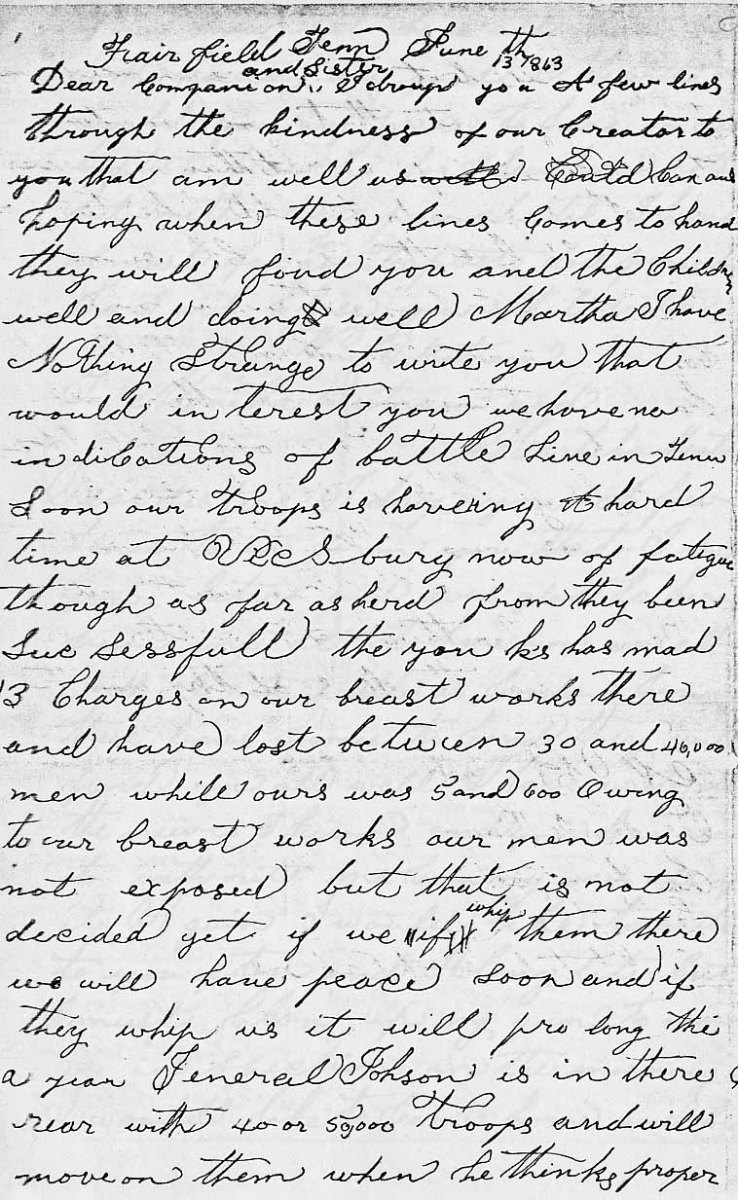 Fairfield Tenn June 13th 1863
Dear Companion and Sister I droup you A few lines
through the kindness of our Creator to
you that am well us Could Can and
hoping when these lines Comes to hand
they will find you and the Childr
well and doing well Martha I have
Nothing Strange to write you that
would in terest you we have no
in dications of battle Line in Tenn
Soon our troops is haveing A hard
time at VicSbury now of fatigue
though as far as herd from they been
Suc Sessfull the you ks has mad
13 Charges on our breast works there
and have lost between 30 and 40,000
men while ours was 5 and 600 Owing
to our breast works our men was
not exposed but that is not
decided yet if we if whip them there
we will have peace soon and if
they whip us it will pro long the
a year General Johson is in there
rear with 40 or 50,000 troops and will
move on them when he thinks proper